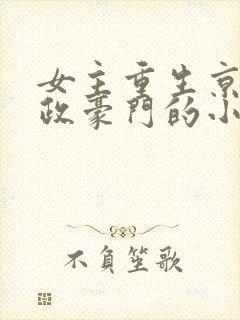 女主重生京
政豪門的小
不負笙歌